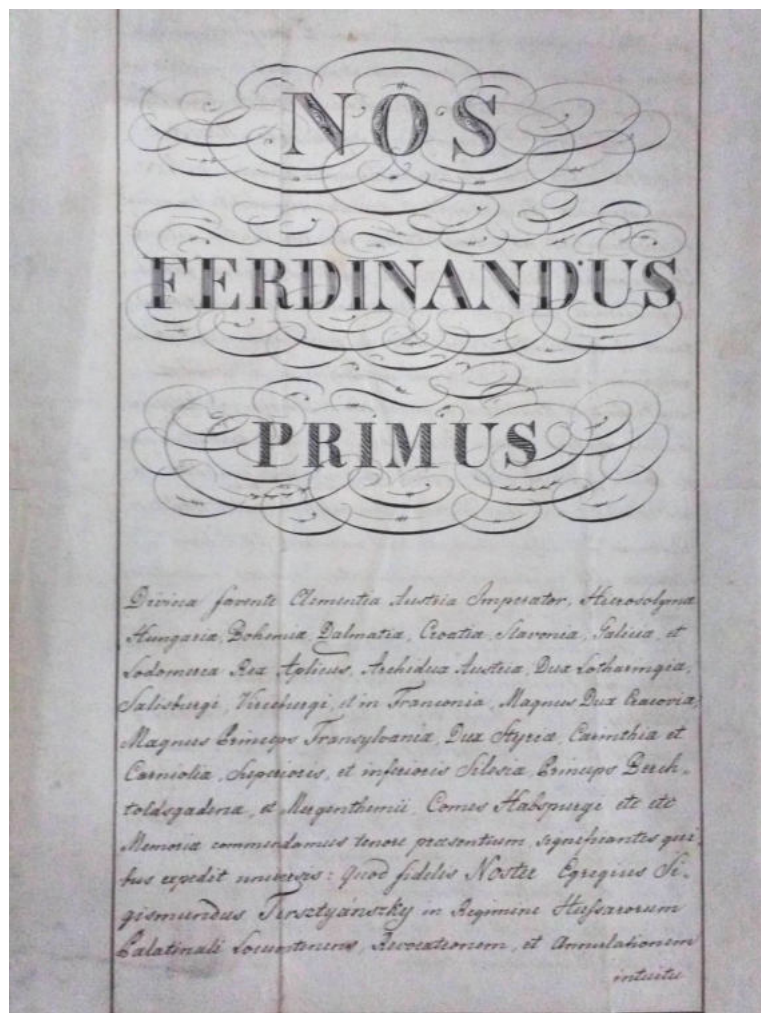 NOS
FERDINANDUS
PRIMUS
Divina favente Clementia Austriæ Imperator, Hierosolymæ
Hungariæ, Bohemiæ, Dalmatiæ, Croatiæ, Slavoniæ, Galiciæ, et
Lodomeriæ Rex Aplicus, Archidux Austriæ, Dux Lotharingiæ,
Salisburgi, Virceburgi, et in Franconia, Magnus Dux Cracoviæ,
Magnus Princeps Transylvaniæ, Dux Styriæ, Carinthiæ et
Carnioliæ, Superioris, et inferioris Silesiæ, Princeps Berch-
toldsgadenæ, et Mergenthemii, Comes Habspurgi etc etc
Memoriæ commendamus tenore præsentium, significantes qui-
bus expedit universis: Quod fidelis Noster Egregius Si-
gismundus Tersztyánszky in Regimine Hussarorum
Palatinali Locumtenens, Revocationem, et Annulationem
intuitu